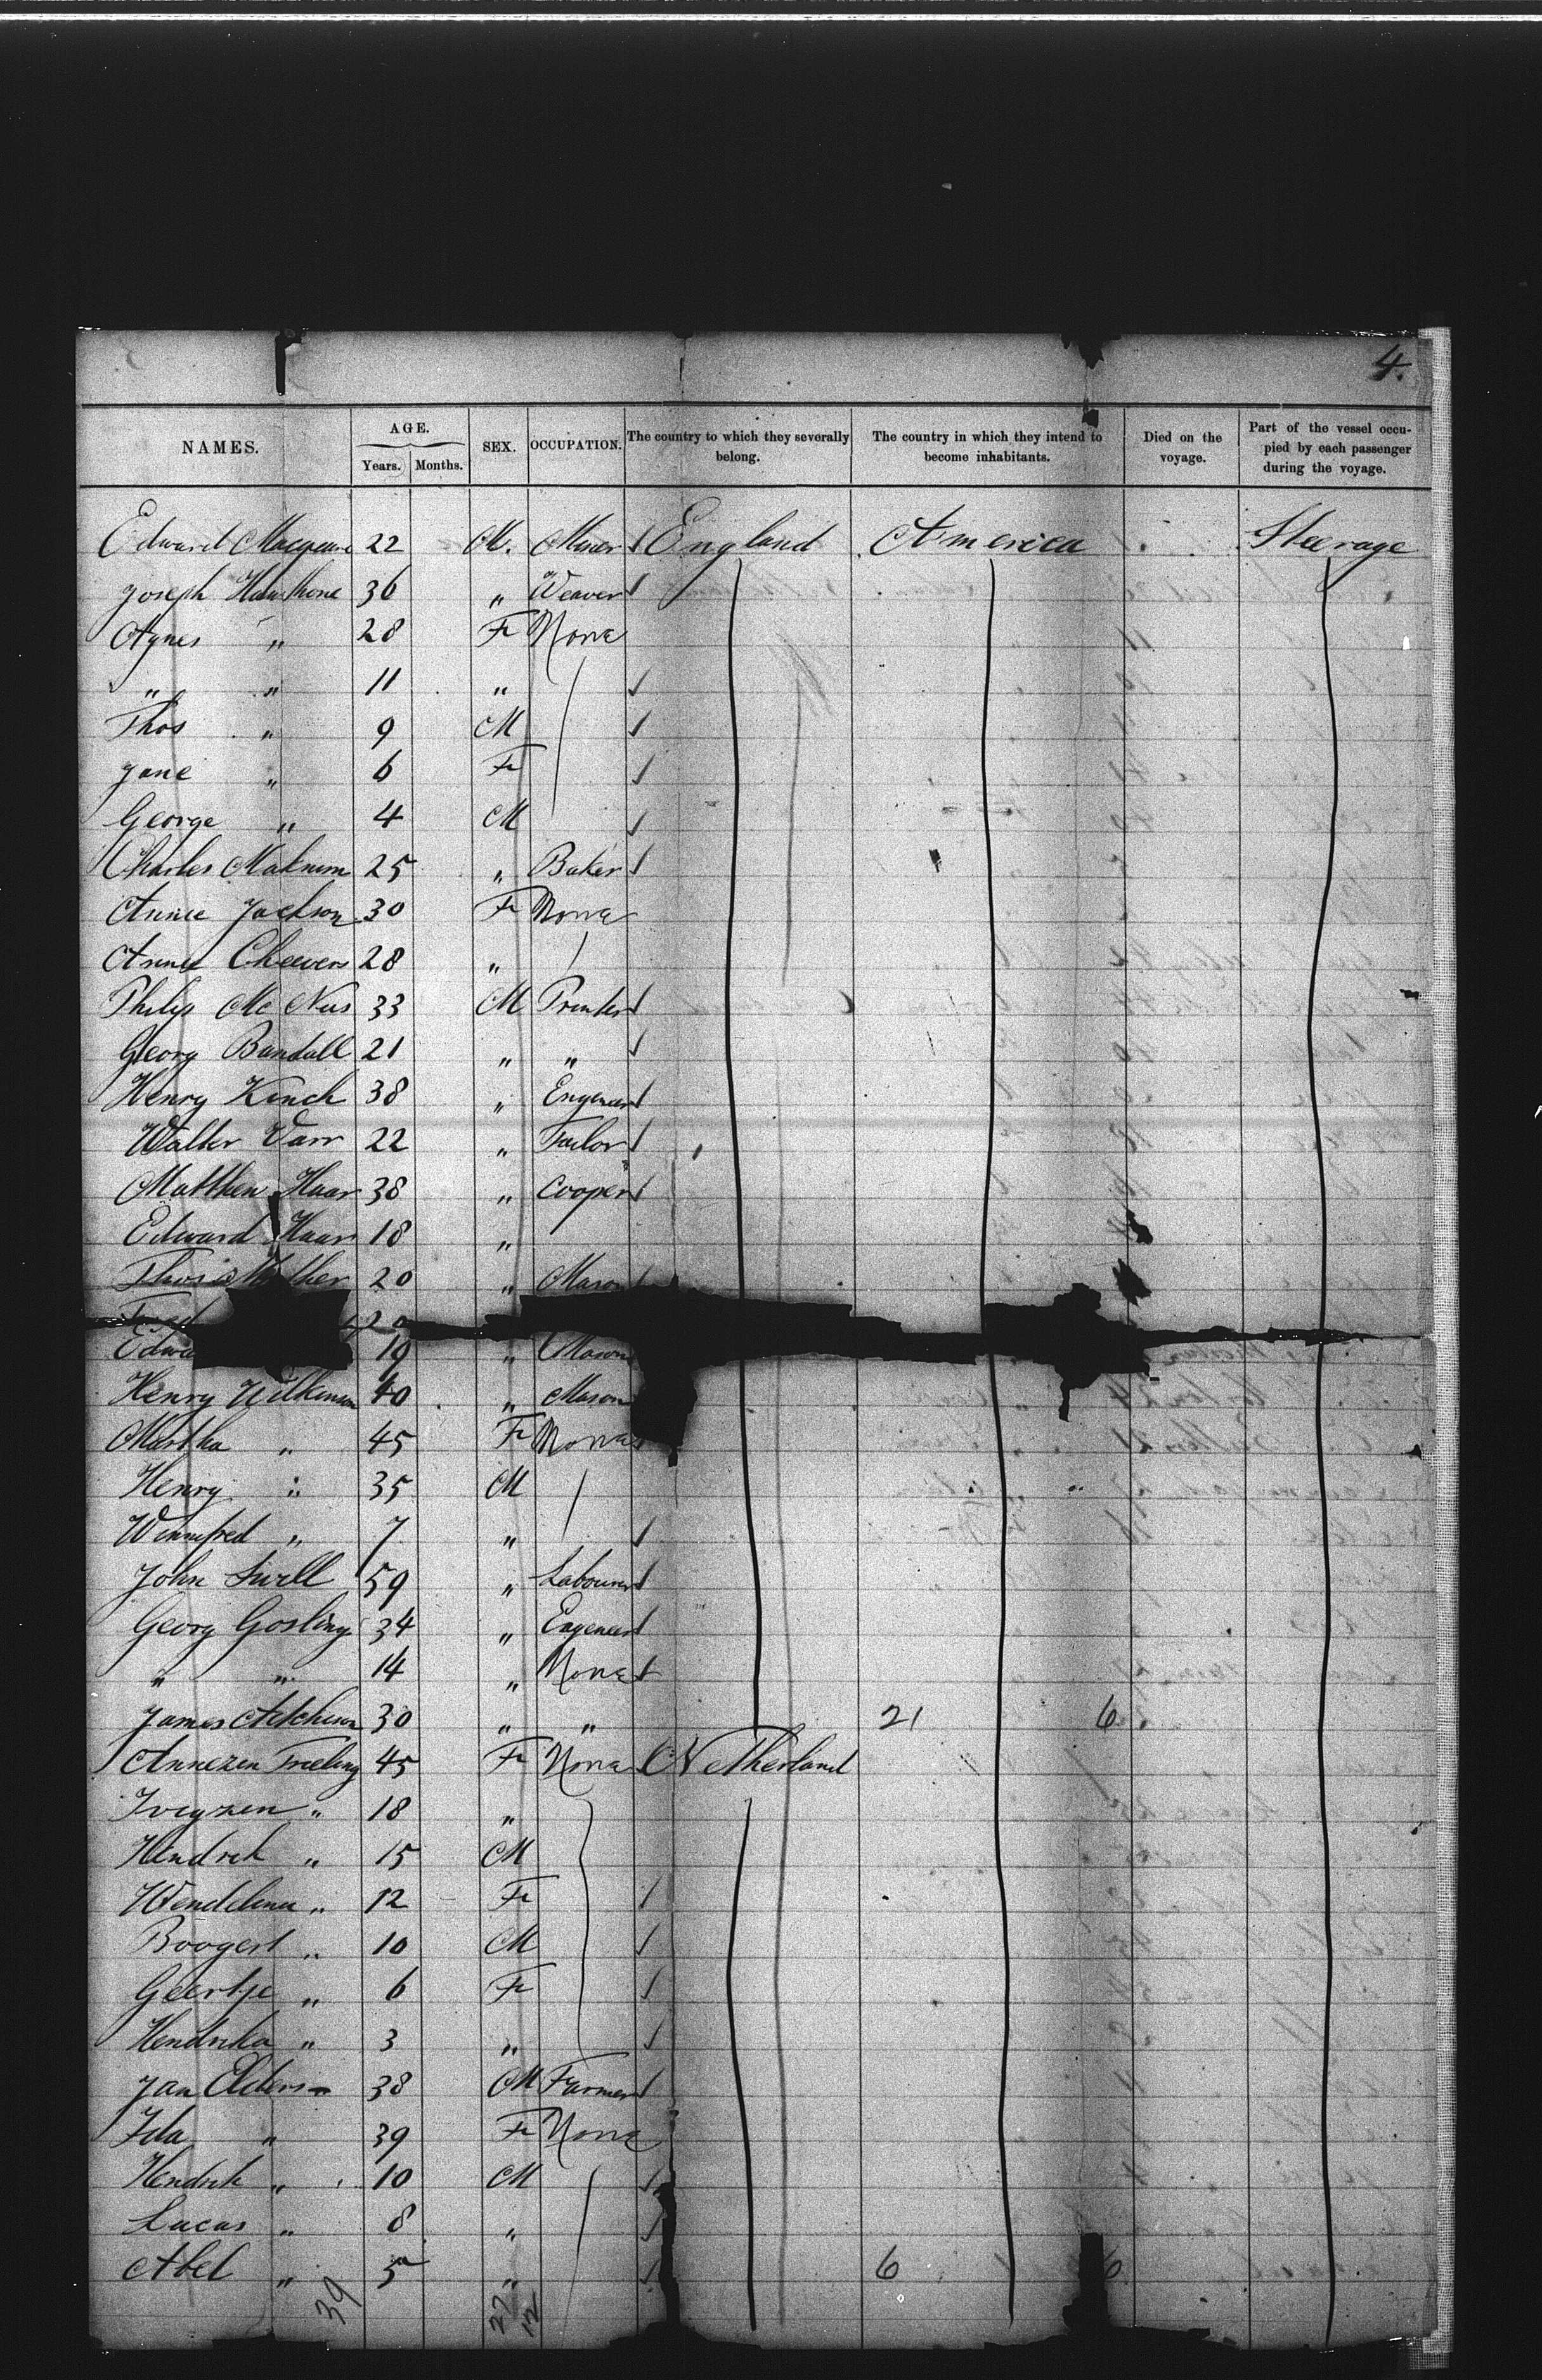 4.
NAMES. AGE. Years. Months. SEX. OCCUPATION. The country to which they severally belong. The country in which they intend to become inhabitants. Died on the voyage. Part of the vessel occupied by each passenger during the voyage.
Edward 22 M. Miner England America Steerage
Joseph Hawthone 36 " Weaver
Agnes " 28 Fe None
" " 11 "
Thos " 9 M
Jane " 6 Fe
George " 4 M
Charles 25 " Baker
Annie Jackson 30 Fe None
Annie Cheevers 28 "
Philip Mc 33 M Printer
Georg 21 " "
Henry Kinch 38 " Engeneer
Walter Varr 22 " Tailor
Matthew Haar 38 " Cooper
Edward Haar 18 "
Thos 20 " Mason
20
19 " Mason
Henry Wilkinson 40 " Mason
Martha " 45 Fe None
Henry " 35 M
Winnifred " 7 "
John 59 " Labourer
Georg Gosling 34 " Engeneer
" " 14 " None
James Aitchison 30 " " 21 6
Annezen Freeling 45 Fe None Netherland
18 "
Hendrik " 15 M
Wendelina " 12 Fe
Boogert " 10 M
Geertje " 6 Fe
Hendrika " 3 "
Jan 38 M Farmer
Ida " 39 Fe None
Hendrik " 10 M
Lucas " 8 "
Abel " 5 " 6 6
39 27 12